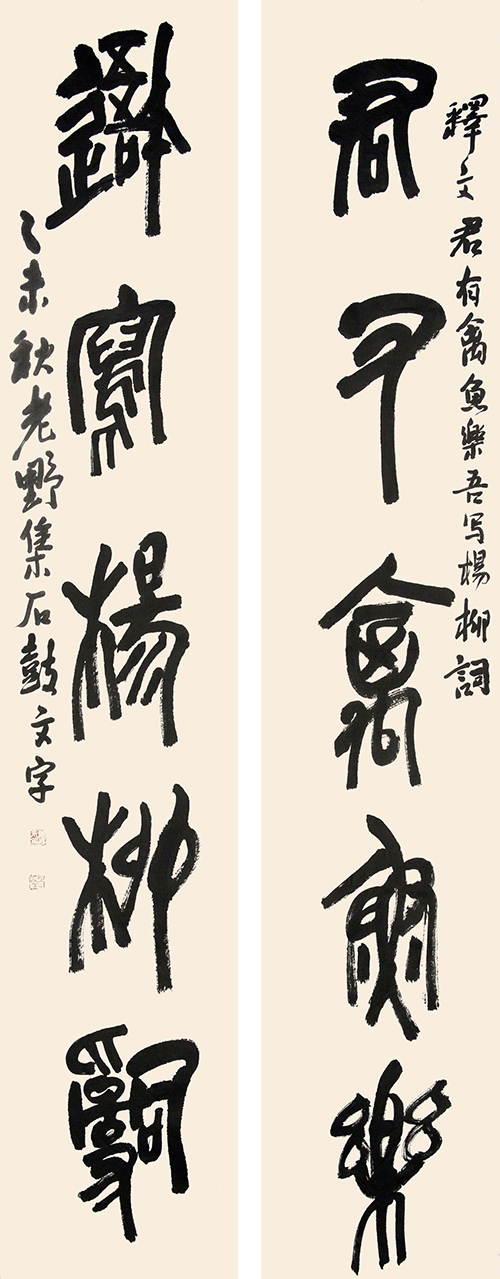 君又禽魚樂
釋文 君有禽魚樂吾写楊柳詞
䢩寫楊柳𤔲
乙未秋老野集石鼓文字